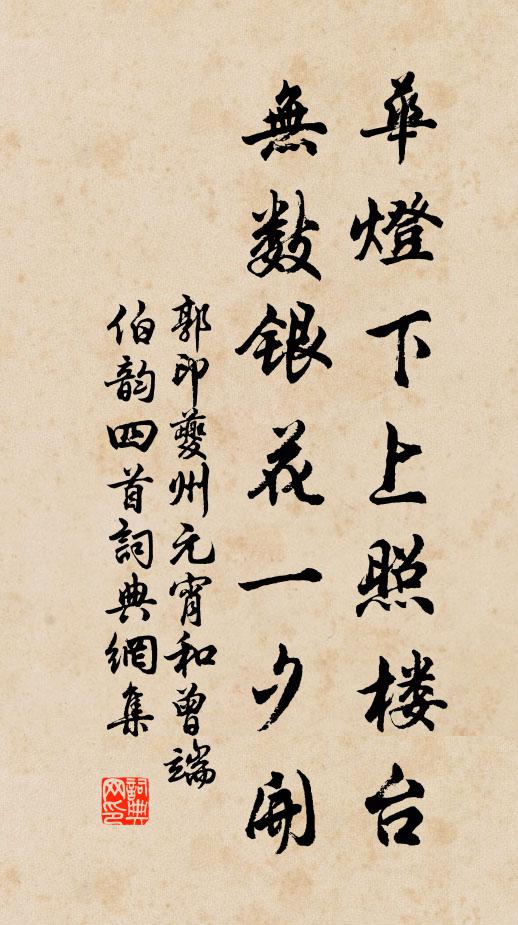 華燈下上照楼台
無数銀花一夕開
郭印夔州元宵和曾端
伯韵四首詞典網集
詞典
网印